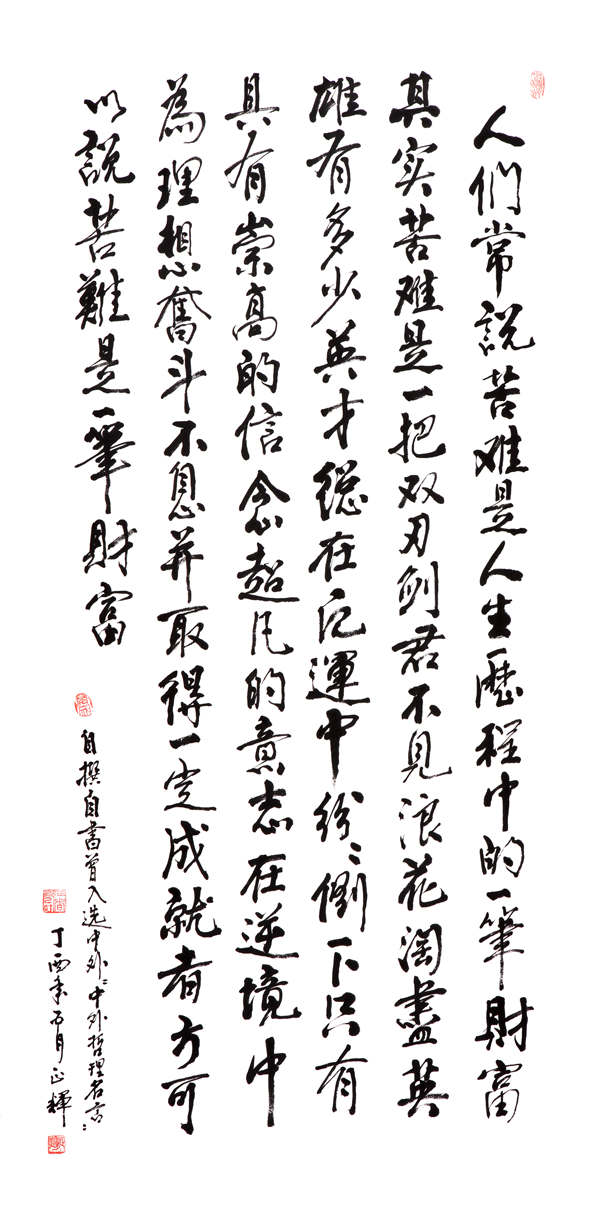 人們常說苦难是人生歷程中的一筆財富
其实苦难是一把双刃劍君不見浪花淘盡英
雄有多少英才總在厄運中紛〻倒下只有
具有崇高的信念超凡的意志在逆境中
為理想奮斗不息并取得一定成就者方可
以說苦難是一筆財富
自撰自書曾入选中外〻中外哲理名言〻
丁酉年五月正輝